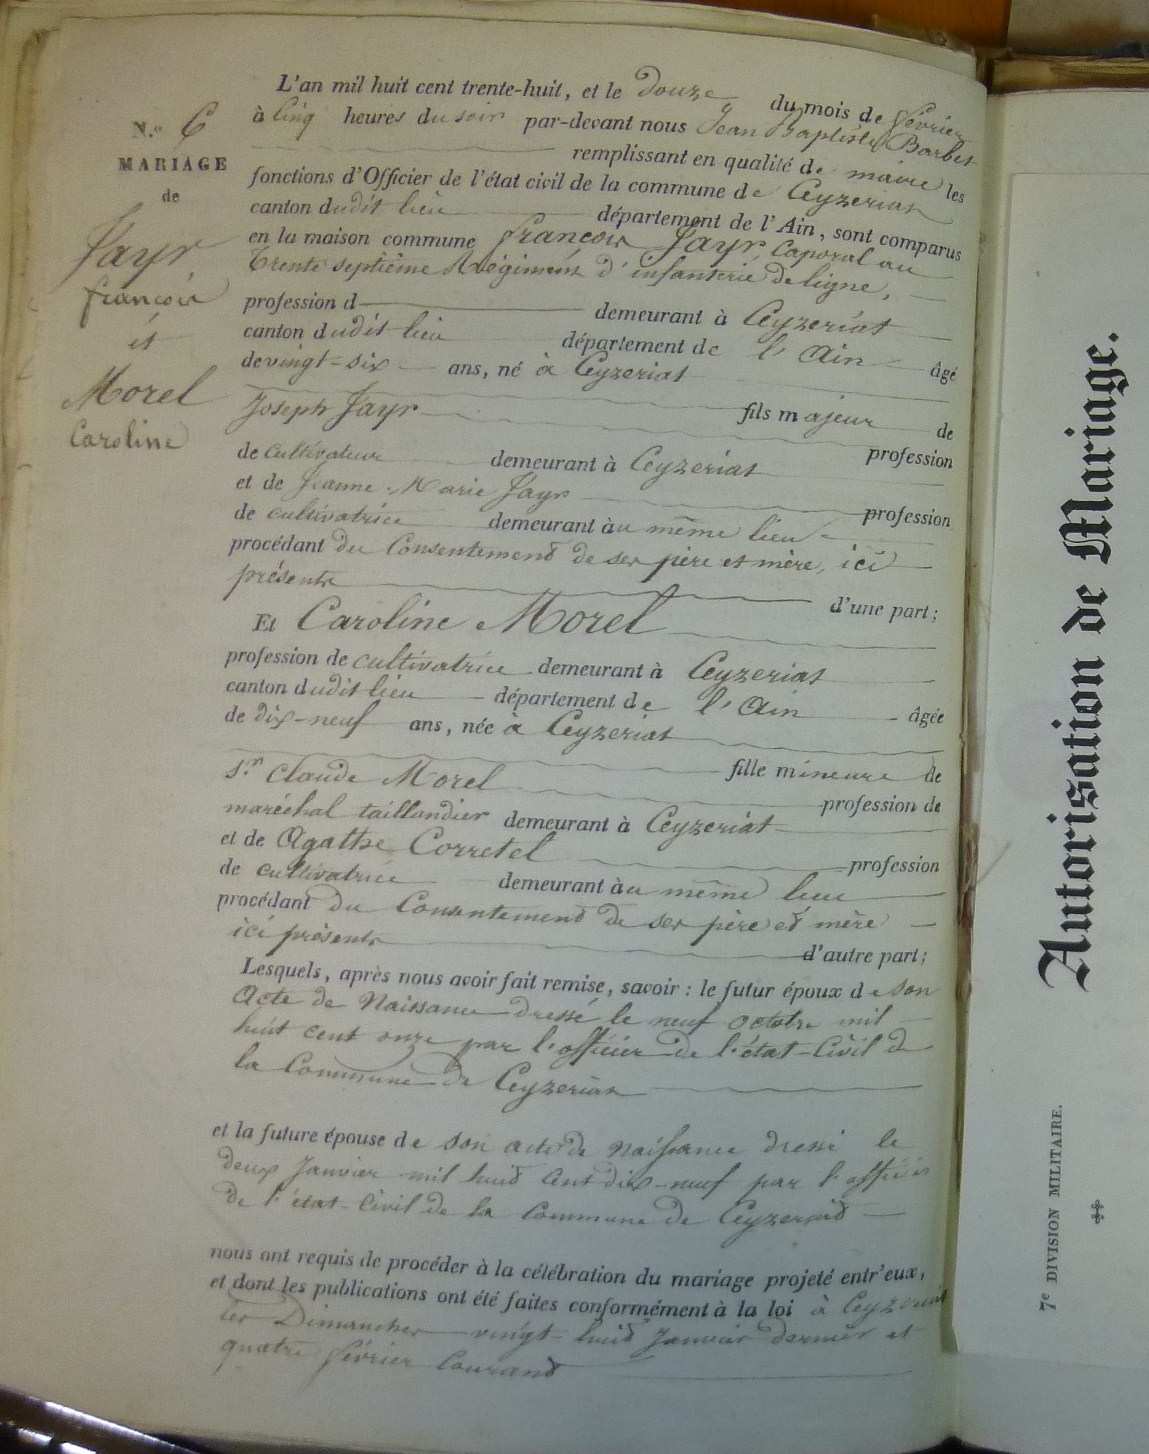 N.º 6
MARIAGE
de
Jayr
françois
et
Morel
Caroline
L'an mil huit cent trente-huit, et le douze du mois de février
à cinq heures du soir par-devant nous Jean Baptiste Barbet
remplissant en qualité de maire les
fonctions d'Officier de l'état civil de la commune de Ceyzeriat
canton dudit lieu département de l'Ain, sont comparus
en la maison commune françois Jayr, Caporal au
trente septième Régiment d'infanterie de ligne,
profession d demeurant à Ceyzeriat
canton dudit lieu département de l'Ain âgé
de vingt-six ans, né à Ceyzeriat
fils majeur de
Joseph Jayr profession
de cultivateur demeurant à Ceyzeriat
et de Jeanne Marie Jayr profession
de cultivatrice demeurant àu même lieu
procédant du Consentement de ses père et mère, ici
présents d'une part;
Et Caroline Morel
profession de cultivatrice demeurant à Ceyzeriat
canton dudit lieu département de l'Ain âgée
de dix-neuf ans, née à Ceyzeriat
fille mineure de
Sr Claude Morel profession de
maréchal taillandier demeurant à Ceyzeriat
et de Agathe Corretel profession
de cultivatrice demeurant àu même lieu
procédant du Consentement de ses père et mère
ici présents d'autre part;
Lesquels, après nous avoir fait remise, savoir : le futur époux de son
Acte de Naissance dressé le neuf octobre mil
huit cent onze par l'officier de l'état-Civil de
la Commune de Ceyzeriat
et la future épouse de son acte de naissance dressé le
deux Janvier mil huit cent dix-neuf par l'officier
de l'état-Civil de la Commune de Ceyzeriat
nous ont requis de procéder à la célébration du mariage projeté entr'eux,
et dont les publications ont été faites conformément à la loi à Ceyzeriat
les Dimanches vingt-huit Janvier dernier et
quatre février Courant
Autorisation de Mariage.
7e DIVISION MILITAIRE.